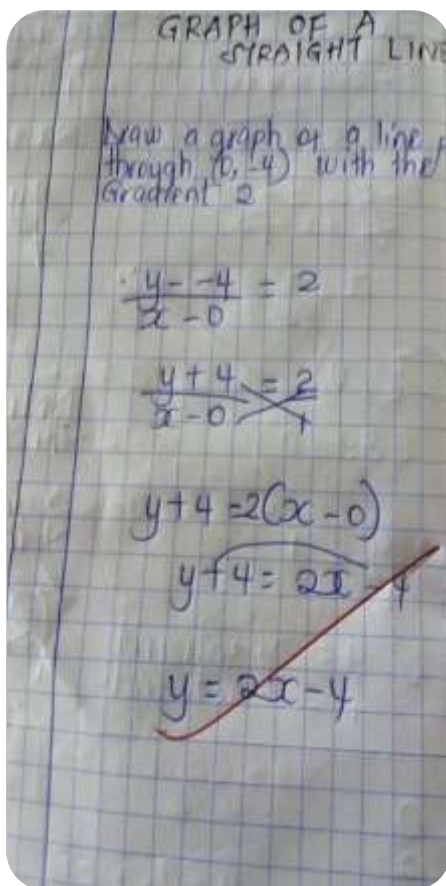 GRAPH OF A
STRAIGHT LINE
Draw a graph of a line
through (0, -4) with the
Gradient 2
y - -4 / x - 0 = 2
y + 4 / x - 0 = 2 / 1
y + 4 = 2(x - 0)
y + 4 = 2x - 4
y = 2x - 4